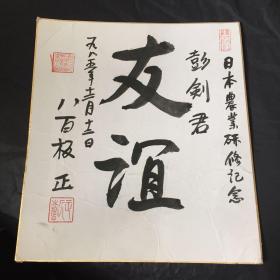 日本農業研修记念
彭剑君
友谊
一九八五年十二月十二日
八百板正